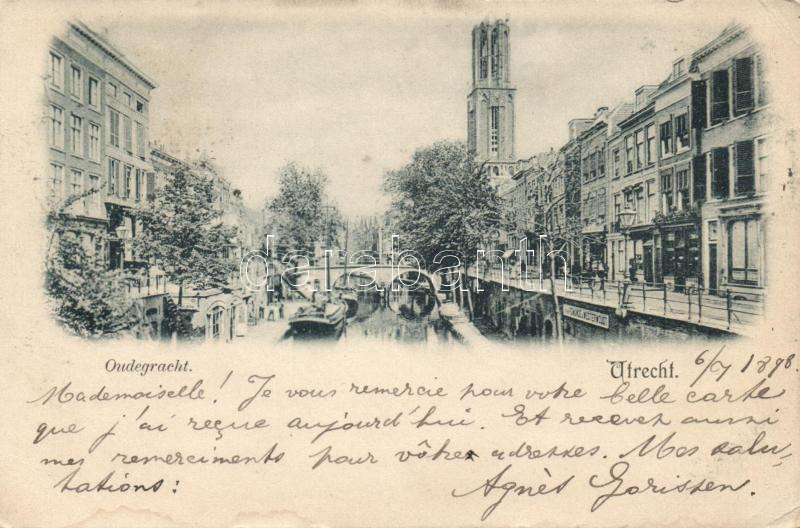 darabanth
Oudegracht. Utrecht. 6/7 1898.
Mademoiselle! Je vous remercie pour votre belle carte
que j'ai reçue aujourd'hui. Et recevez aussi
mes remerciments pour vôtre adresses. Mes salu-
tations: Agnès Gorissen.